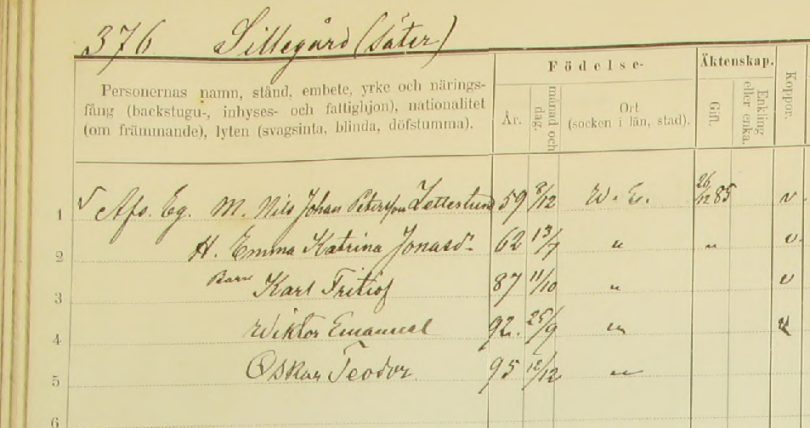 376 Sillegård (säter)
Födelse-
Äktenskap.
Koppor.
Personernas namn, stånd, embete, yrke och närings-
fång (backstugu-, inhyses- och fattighjon), nationalitet
(om främmande), lyten (svagsinta, blinda, döfstumma).
År.
månad och
dag.
Ort
(socken i län, stad).
Gift.
Enkling
eller enka.
1 Afs. Eg. M. Nils Johan Peterson Zetterlund 59 8/12 W. E. 26/12 85 v
2 H. Emma Katrina Jonasdr 62 13/7 " " v
3 Barn Karl Fritiof 87 11/10 " v
4 Wiktor Emanuel 92. 25/9 "
5 Oskar Teodor. 95 12/12 "
6